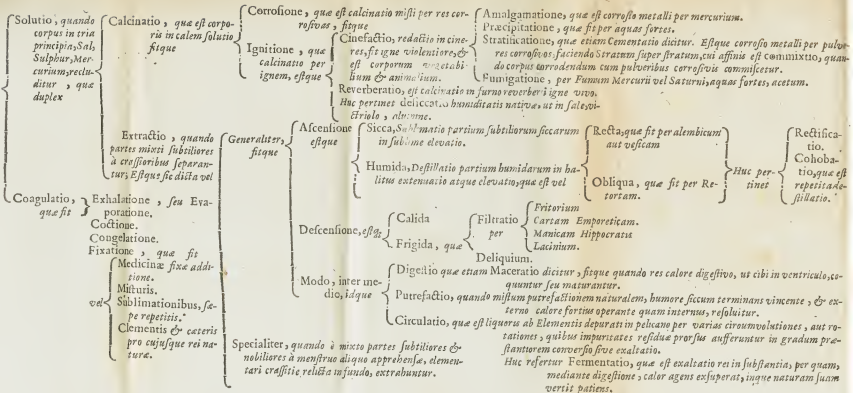 Solutio, quando
corpus in tria
principia, Sal,
Sulphur, Mer-
curium, reclu-
ditur , quæ
duplex
Calcinatio , quæ eſt corpo-
ris in calem ſolutio
fitque
Corroſione, quæ eſt calcinatio miſti per res cor-
roſivas, fitque
Amalgamatione, quæ eſt corroſio metalli per mercurium.
Præcipitatione, quæ fit per aquas fortes.
Stratificatione, quæ etiam Cementatio dicitur. Eſtque corroſio metalli per pulve-
res corroſivos, faciendo Stratum ſuper ſtratum, cui affinis eſt commixtio, quan-
do corpus corrodendum cum pulveribus corroſivis commiſcetur.
Fumigatione, per Fumum Mercurii vel Saturni, aquas fortes, acetum.
Ignitione , quæ
calcinatio per
ignem, eſtque
Cinefactio, redactio in cine-
res, fit igne violentiore, &
eſt corporum vegetabi-
lium & animalium.
Reverberatio, eſt calcinatio in furno reverberii igne vivo.
Huc pertinet deſiccatio humiditatis nativæ, ut in ſale, vi-
ctriolo , alumine.
Extractio , quando
partes mixti ſubtiliores
à craſſioribus ſeparan-
tur; Eſtque ſic dicta vel
Generaliter,
fitque
Aſcenſione
eſtque
Sicca, Sublimatio partium ſubtiliorum ſiccarum
in ſublime elevatio.
Humida, Deſtillatio partium humidarum in ha-
litus extenuatio atque elevatio, quæ eſt vel
Recta, quæ fit per alembicum
aut veſicam
Obliqua, quæ fit per Re-
tortam.
Huc per-
tinet
Rectifica-
tio.
Cohoba-
tio, quæ eſt
repetita de-
ſtillatio.
Deſcenſione, eſtq;
Calida
Frigida, quæ
Filtratio
per
Fritorium
Cartam Emporeticam.
Manicam Hippocratis
Lacinium.
Deliquium.
Modo, inter me-
dio, idque
Digeſtio quæ etiam Maceratio dicitur, fitque quando res calore digeſtivo, ut cibi in ventriculo, co-
quuntur ſeu maturantur.
Putrefactio, quando miſtum putrefactionem naturalem, humore ſiccum terminans vincente, & ex-
terno calore fortius operante quam internus, reſolvitur.
Circulatio, quæ eſt liquorus ab Elementis depurati in pelicano per varias circumvolutiones, aut ro-
tationes, quibus impuritates reſiduæ prorſus aufferuntur in gradum præ-
ſtantiorem converſio ſive exaltatio.
Huc refertur Fermentatio, quæ eſt exaltatio rei in ſubſtantia, per quam,
mediante digeſtione , calor agens exſuperat, inque naturam ſuam
vertit patiens.
Specialiter, quando è mixto partes ſubtiliores &
nobiliores à menſtruo aliquo apprehenſæ, elemen-
tari craſſitie relicta in fundo, extrabuntur.
Coagulatio ,
quæ fit
Exhalatione , ſeu Eva-
poratione.
Coctione.
Congelatione.
Fixatione , quæ fit
vel
Medicinæ fixæ addi-
tione.
Miſturis.
Sublimationibus, ſæ-
pe repetitis.
Clementis & cæteris
pro cujuſque rei na-
turæ.